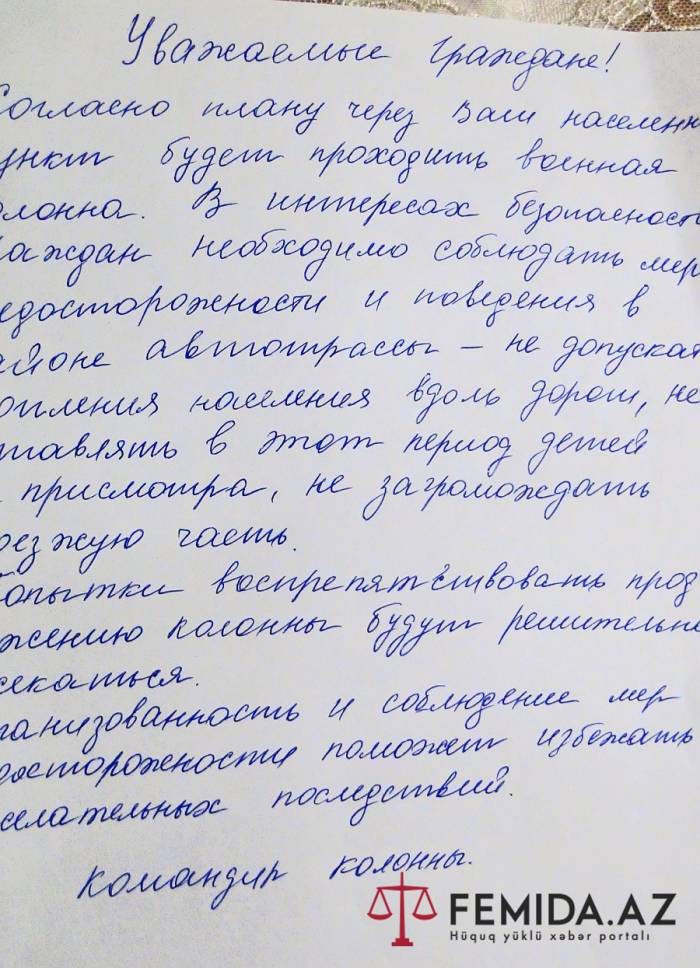 Уважаемые граждане!
Согласно плану через Ваш населенн
ункт будет проходить военная
олонна. В интересах безопасност
раждан необходимо соблюдать мер
едосторожности и поведения в
айоне автотрассы – не допускат
опления населения вдоль дорог, не
тавлять в этот период детей
присмотра, не загромождать
оезжую часть.
опытки воспрепятствовать прод
жению колонны будут решительно
секаться.
ганизованность и соблюдение мер
досторожности поможет избежать
желательных последствий.
Командир колонны.
FEMIDA.AZ
Hüquq yüklü xəbər portalı